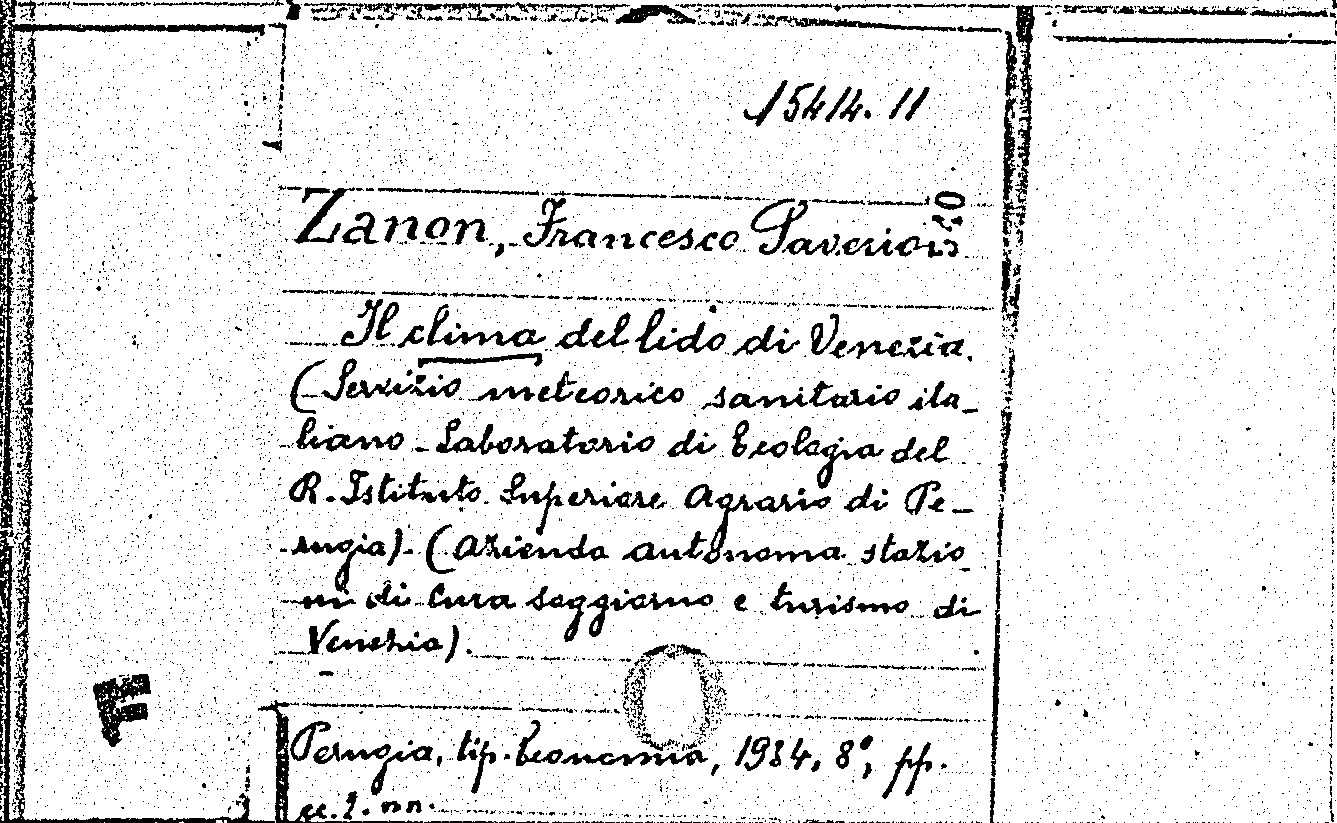 15414.11
Zanon, Francesco Saverio
Il clima del lido di Venezia.
(Servizio meteorico sanitario ita-
liano - Laboratorio di Ecologia del
R. Istituto Superiore Agrario di Pe-
rugia). (Azienda autonoma stazio
ni di cura soggiorno e turismo di
Venezia).
Perugia, tip. Economia, 1934, 8°, pp.
cc. 2. nn.